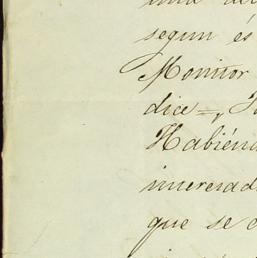 segun és
Monitor
dice =, 
Habiénd
interesad
que se